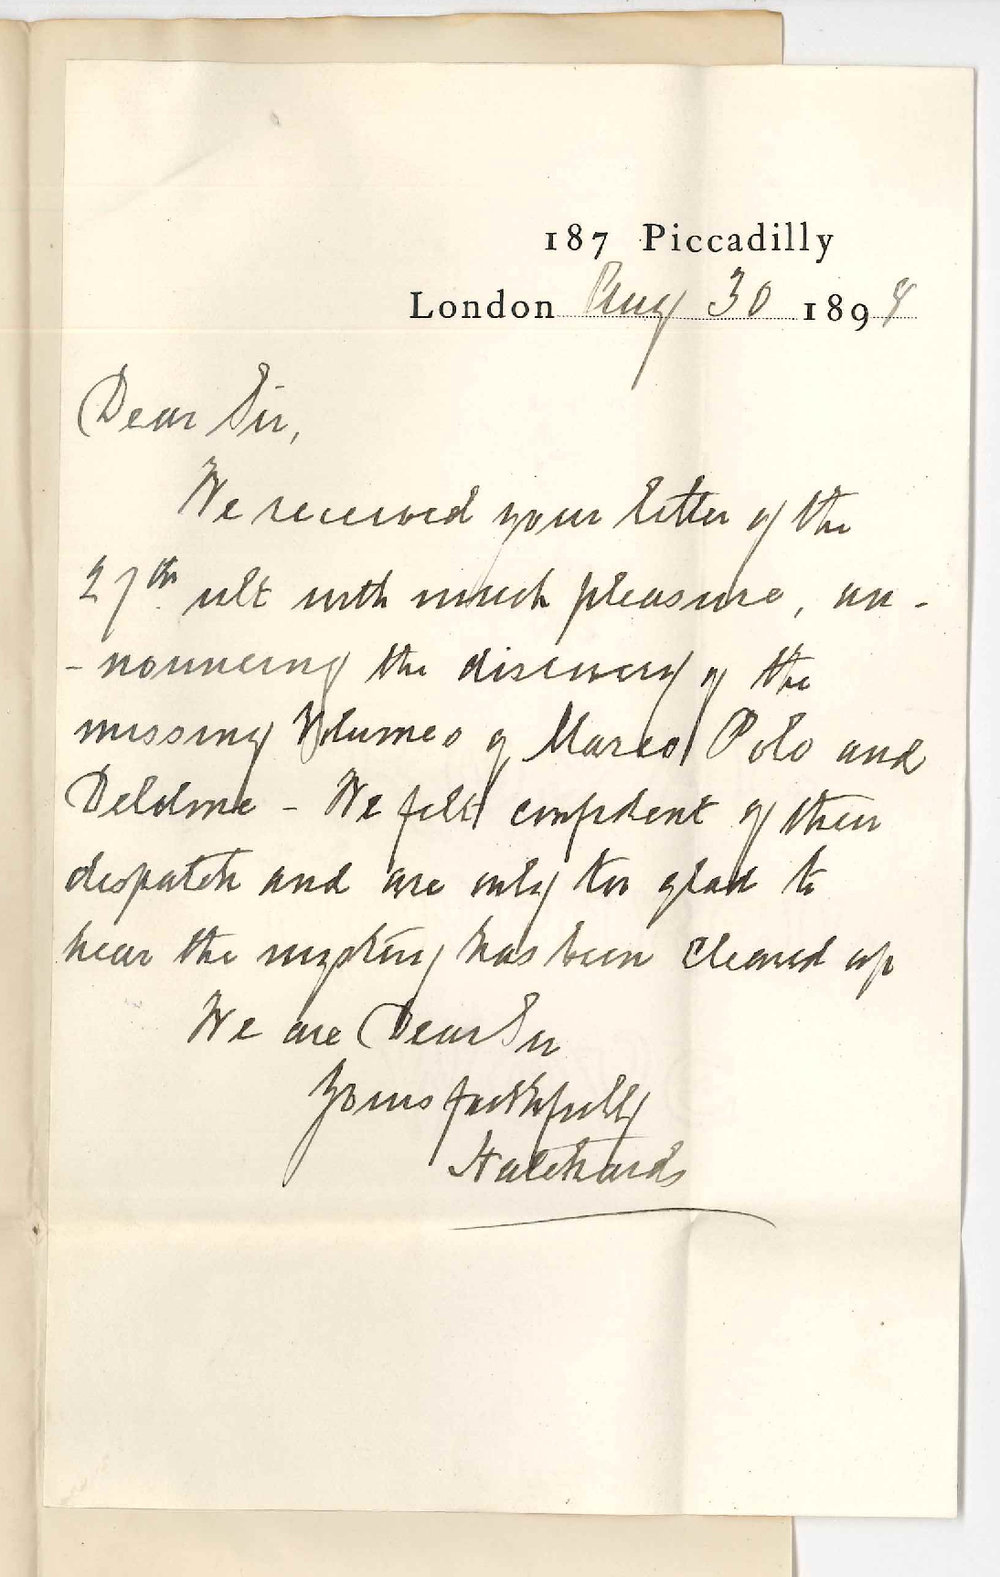 187 Piccadilly
London Aug 30 1894
Dear Sir,
We received your letter of the
27th ult with much pleasure, an-
-nouncing the discovery of the
missing Volumes of Marco Polo and
- We felt confident of their
dispatch and are only too glad to
hear the mystery has been cleared up
We are Dear Sir
Yours faithfully
Hatchards